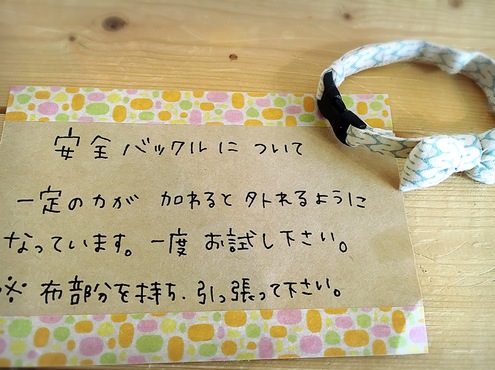 安全バックルについて
一定の力が 加わると外れるように
なっています。一度 お試し下さい。
※ 布部分を持ち、引っ張って下さい。